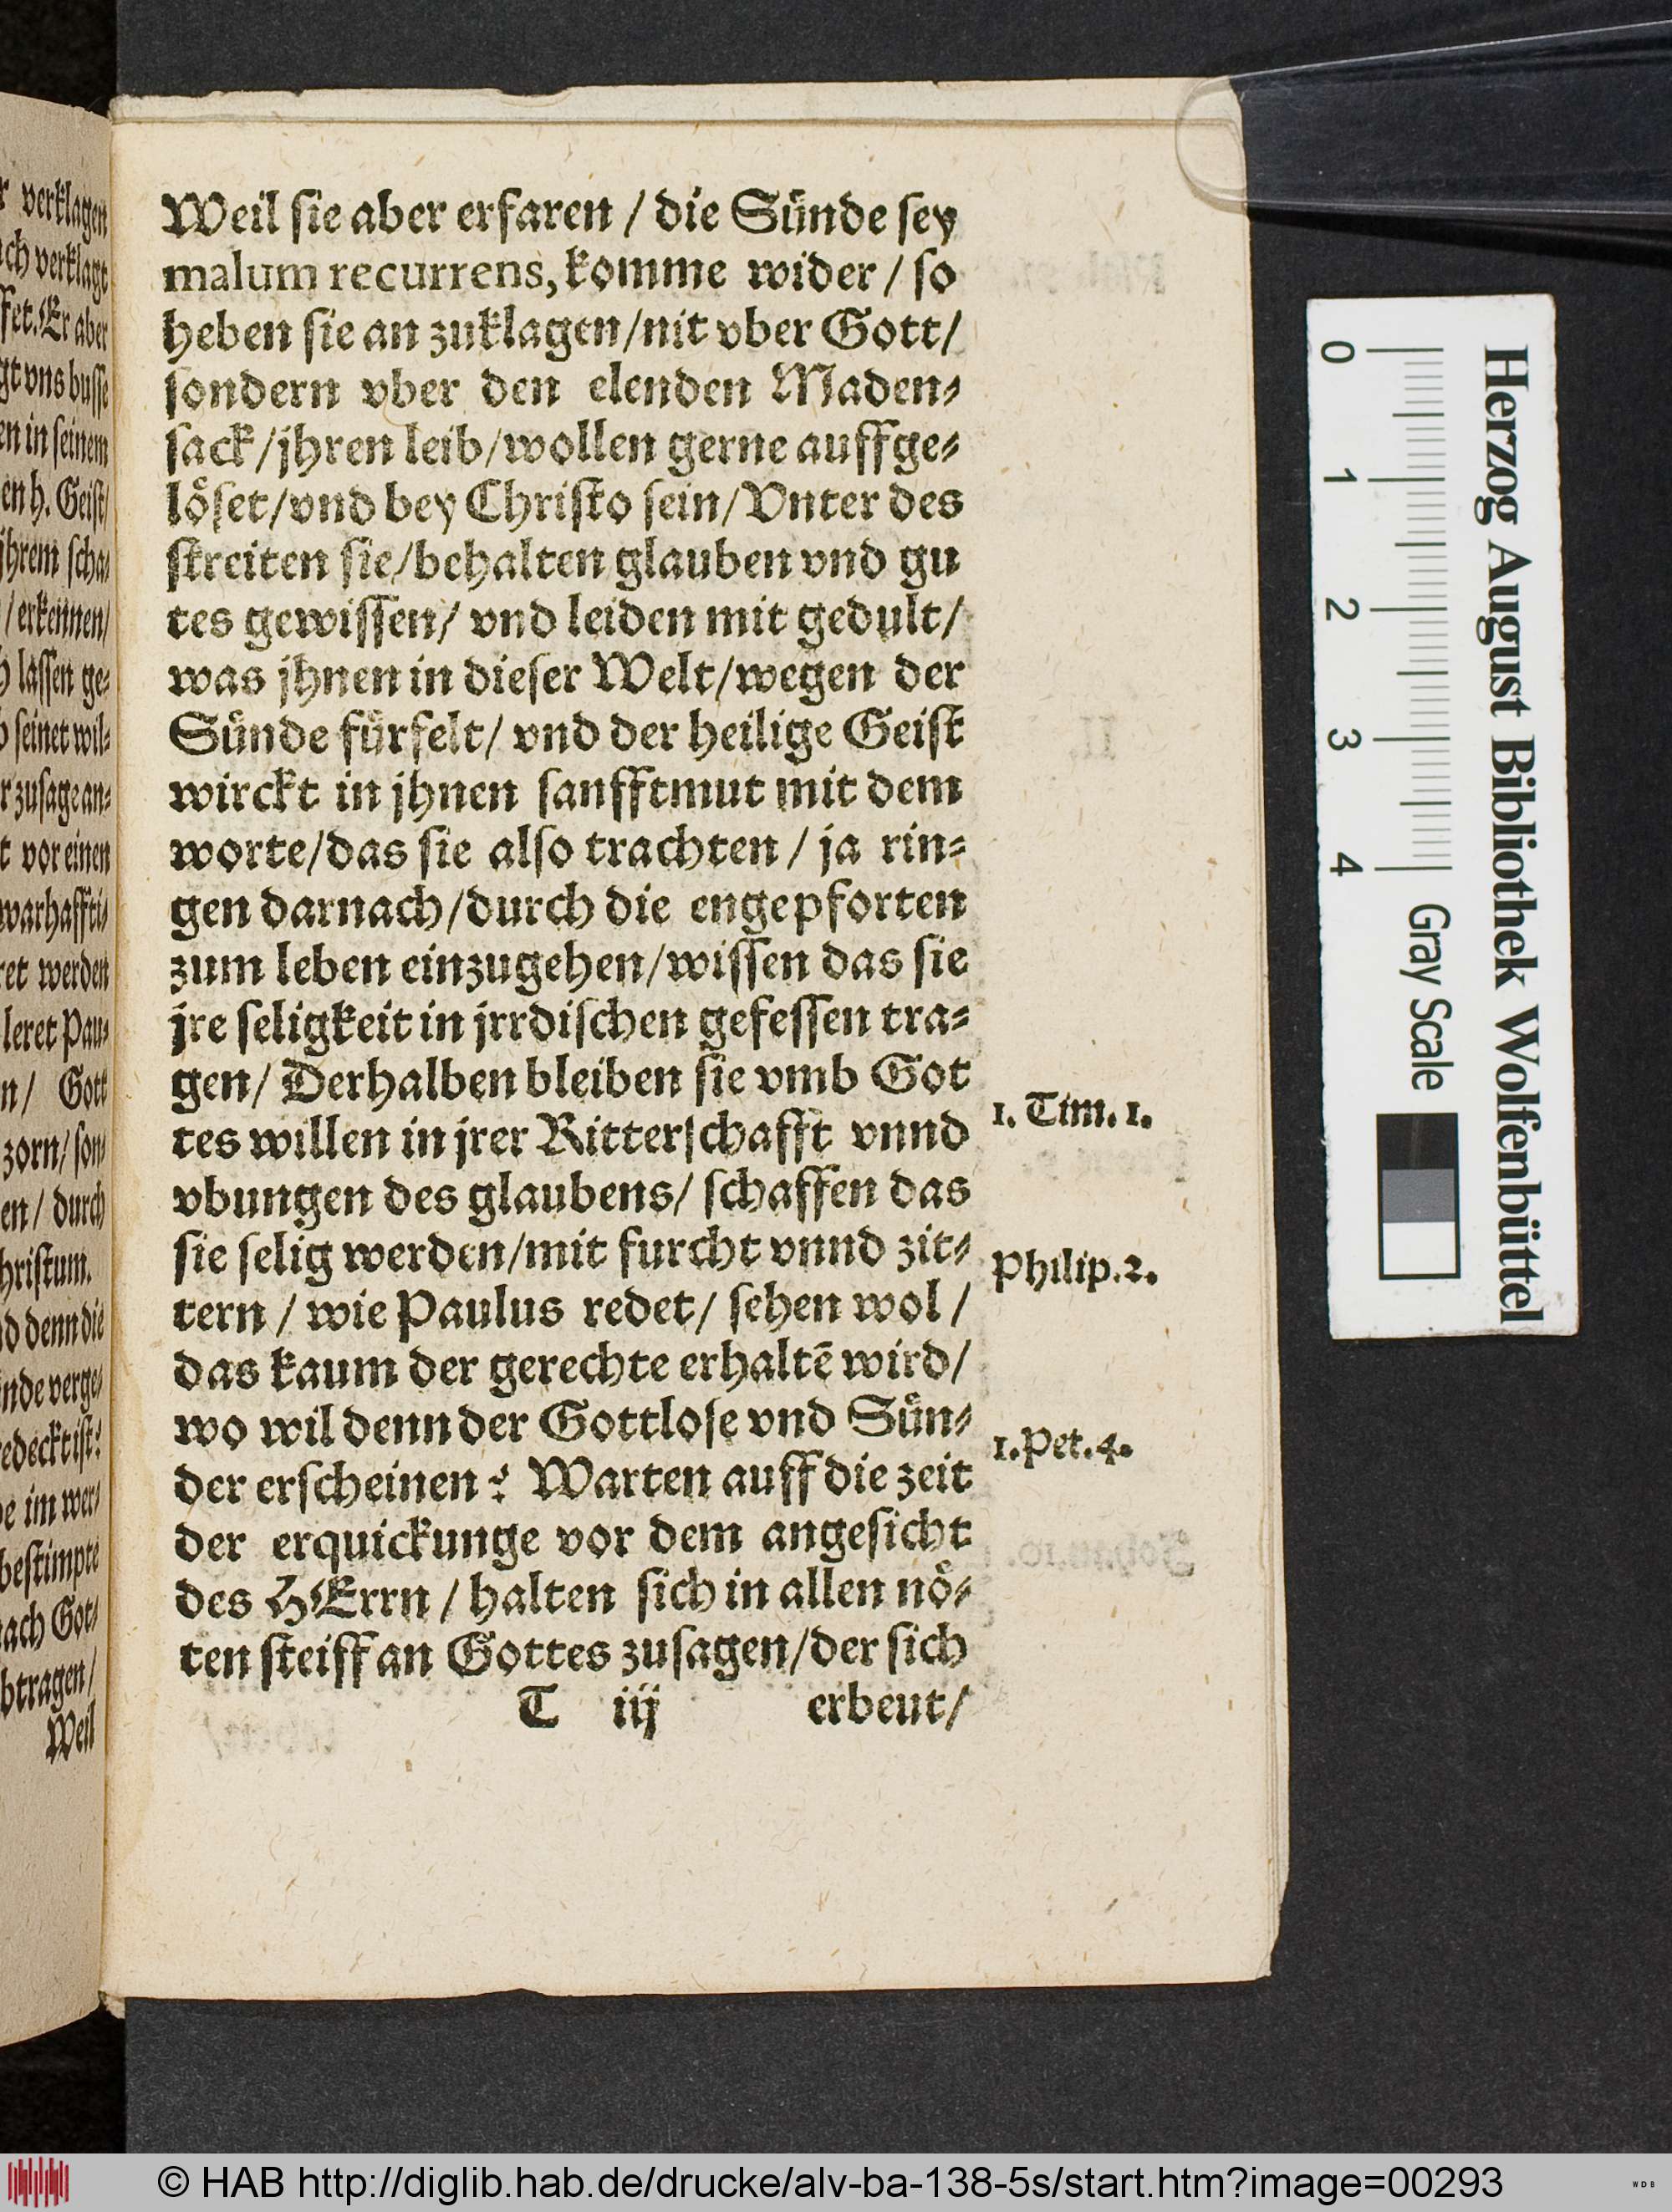 Weil ſie aber erfaren / die Sünde ſey
malum recurrens, komme wider / ſo
heben ſie an zuklagen/nit vber Gott/
ſondern vber den elenden Maden⸗
ſack/jhren leib/wollen gerne auffge⸗
löſet/vnd bey Chriſto ſein/Vnter des
ſtreiten ſie/behalten glauben vnd gu
tes gewiſſen/ vnd leiden mit gedult/
was jhnen in dieſer Welt/wegen der
Sünde fürfelt/ vnd der heilige Geiſt
wirckt in jhnen ſanfftmut mit dem
worte/das ſie alſo trachten / ja rin⸗
gen darnach/durch die engepforten
zum leben einzugehen/wiſſen das ſie
jre ſeligkeit in jrrdiſchen gefeſſen tra⸗
gen/ Derhalben bleiben ſie vmb Got
tes willen in jrer Ritterſchafft vnnd
1. Tim. 1.
vbungen des glaubens/ ſchaffen das
ſie ſelig werden/mit furcht vnnd zit⸗
Philip. 2.
tern / wie Paulus redet/ ſehen wol /
das kaum der gerechte erhaltē wird/
wo wil denn der Gottloſe vnd Sün⸗
1. Pet. 4.
der erſcheinen? Warten auff die zeit
der erquickunge vor dem angeſicht
des HErrn / halten ſich in allen nö⸗
ten ſteiff an Gottes zuſagen/der ſich
T iij erbeut/
verklagen
verklagt
Er aber
vns buſſe
in ſeinem
h. Geiſt/
jhrem ſcha⸗
/ erkennen/
laſſen ge⸗
ſeinet wil⸗
zuſage an⸗
vor einen
warhaffti⸗
werden
leret Pau⸗
Gott
zorn/ ſon⸗
/ durch
denn die
verge⸗
im wer⸗
beſtimpte
Got⸗
Weil
Herzog August Bibliothek Wolfenbüttel
0 1 2 3 4 Gray Scale
© HAB http://diglib.hab.de/drucke/alv-ba-138-5s/start.htm?image=00293
WDB